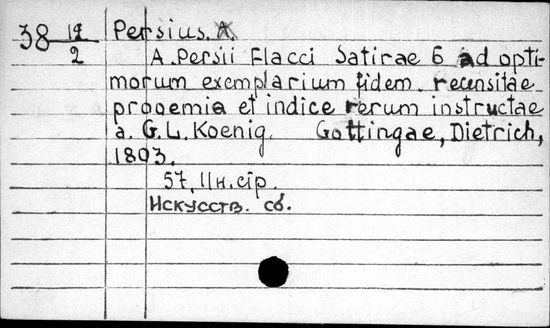 38 12/2 Persius. A.
A. Persii Flacci Satirae 6 ad opti-
morum exemplarium fidem recensitae
prooemia et indice rerum instructae
a. G. L. Koenig. Gottingae, Dietrich,
1803.
57, IIн. стр.
Искусств. сб.